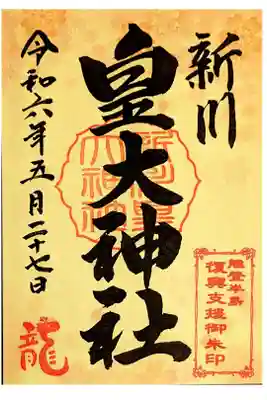 新川
皇大神社
令和六年五月二十七日
能登半島
復興支援御朱印
龍